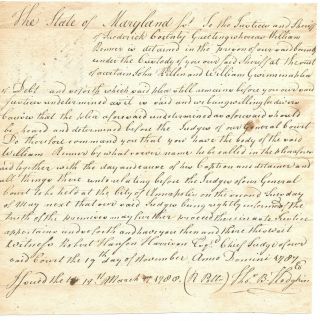 The State of Maryland Sct. To the Justices and Sheriff
of Frederick County Greeting whereas William
Renner is detained in the Prison of our said County
under the Custody of you our said Sheriff at the suit
of a certain John and William
of Debt and so forth which said plea still remains before you our said
Justices undetermined as it is said and we being willing and
Cause that the plea aforesaid undetermined as aforesaid should
be heard and determined before the Judges of our General Court
Do therefore command you that you have the body of the said
William Renner by what soever name he be called in the plea afore
said together with the day and cause of his Caption and detainer and
all things thereunto relating before the Judges of our General
Court to be held at the City of Annapolis on the second Tuesday
of May next that our said Judges being rightly informed of the
truth of the premises may further proceed therein as to Justice
appertains and so forth and have you then and there this writ
Witness Robert Hanson Harrison Esqr. Chief Judge of our
said Court the 19th day of November Anno Domini 1787
Issued the 19th March 1788. Thos. B. Hodgkin